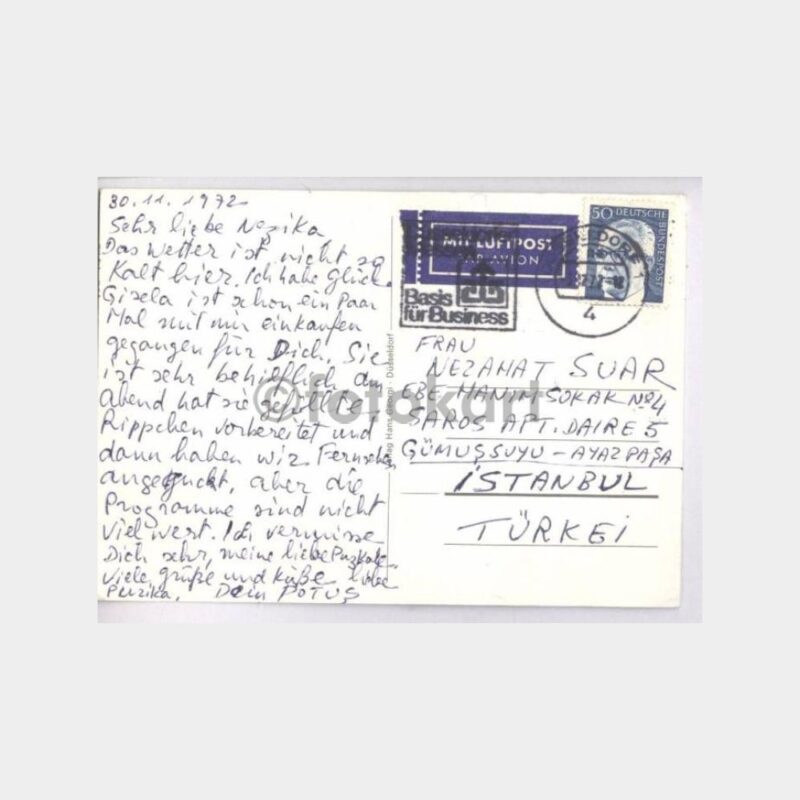 30.11.1972
Sehr liebe Nezika
Das Wetter ist nicht so
Kalt hier. Ich habe Glück.
Gisela ist schon ein Paar
Mal mit mir einkaufen
gegangen für Dich. Sie
ist sehr behilflich am
Abend hat sie
Rippchen vorbereitet und
dann haben wir Fernseh.
angeguckt, aber die
Programme sind nicht
viel wert. Ich vermisse
Dich sehr, meine liebe
Viele grüße und Küße liebe
Puzika. Dein POTUŞ
MIT LUFTPOST
PAR AVION
Basis
für Business
4
50 DEUTSCHE
BUNDESPOST
Düsseldorf
©fotokart
FRAU
NEZAHAT SUAR
EBE HANIM SOKAK No 4
SAROS APT. DAIRE 5
GÜMÜŞSUYU - AYAZPAŞA
İSTANBUL
TÜRKEİ